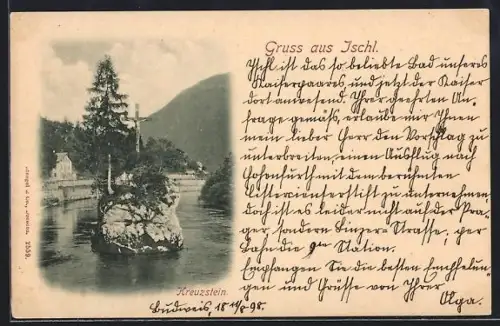 Gruss aus Ischl.
Ischl ist das so beliebte Bad unseres
Kaiserpaares, und jetzt der Kaiser
dort anwesend. Ihrer geehrten An-
frage gemäss, erlaube mir Ihnen
mein lieber Herr den Vorschlag zu
unterbreiten, einen Ausflug nach
Hohenfurth mit dem berühmten
Cisterienserstift zu unternehmen,
doch ist es leider nicht auf der Pra-
ger, sondern Linzer Strasse, per
Bahn die Station.
Empfangen Sie die besten Empfehlun-
gen und Grüsse von Ihrer
Olga.
Kreuzstein.
Budweis, 18 98.
1559.